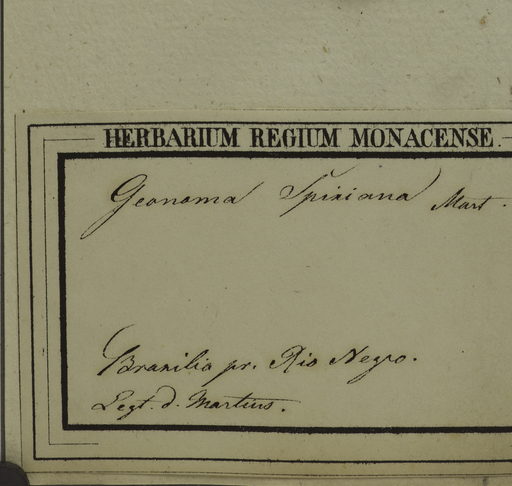 HERBARIUM REGIUM MONACENSE.
Geonoma Spixiana Mart.
Brasilia pr. Rio Negro.
Legt. d. Martius.